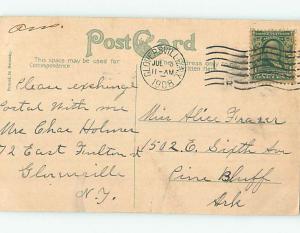 Ans.
Post Card
This space may be used for
Correspondence
GLOVERSVILLE, N.Y.
JUL
11-AM
1908
Please exchange
Postal with me
Mrs Chas Holmer
72 East Fulton
Gloversville
N.Y.
Miss Alice Fraser
1502 E. Sixth Ave
Pine Bluff
Ark